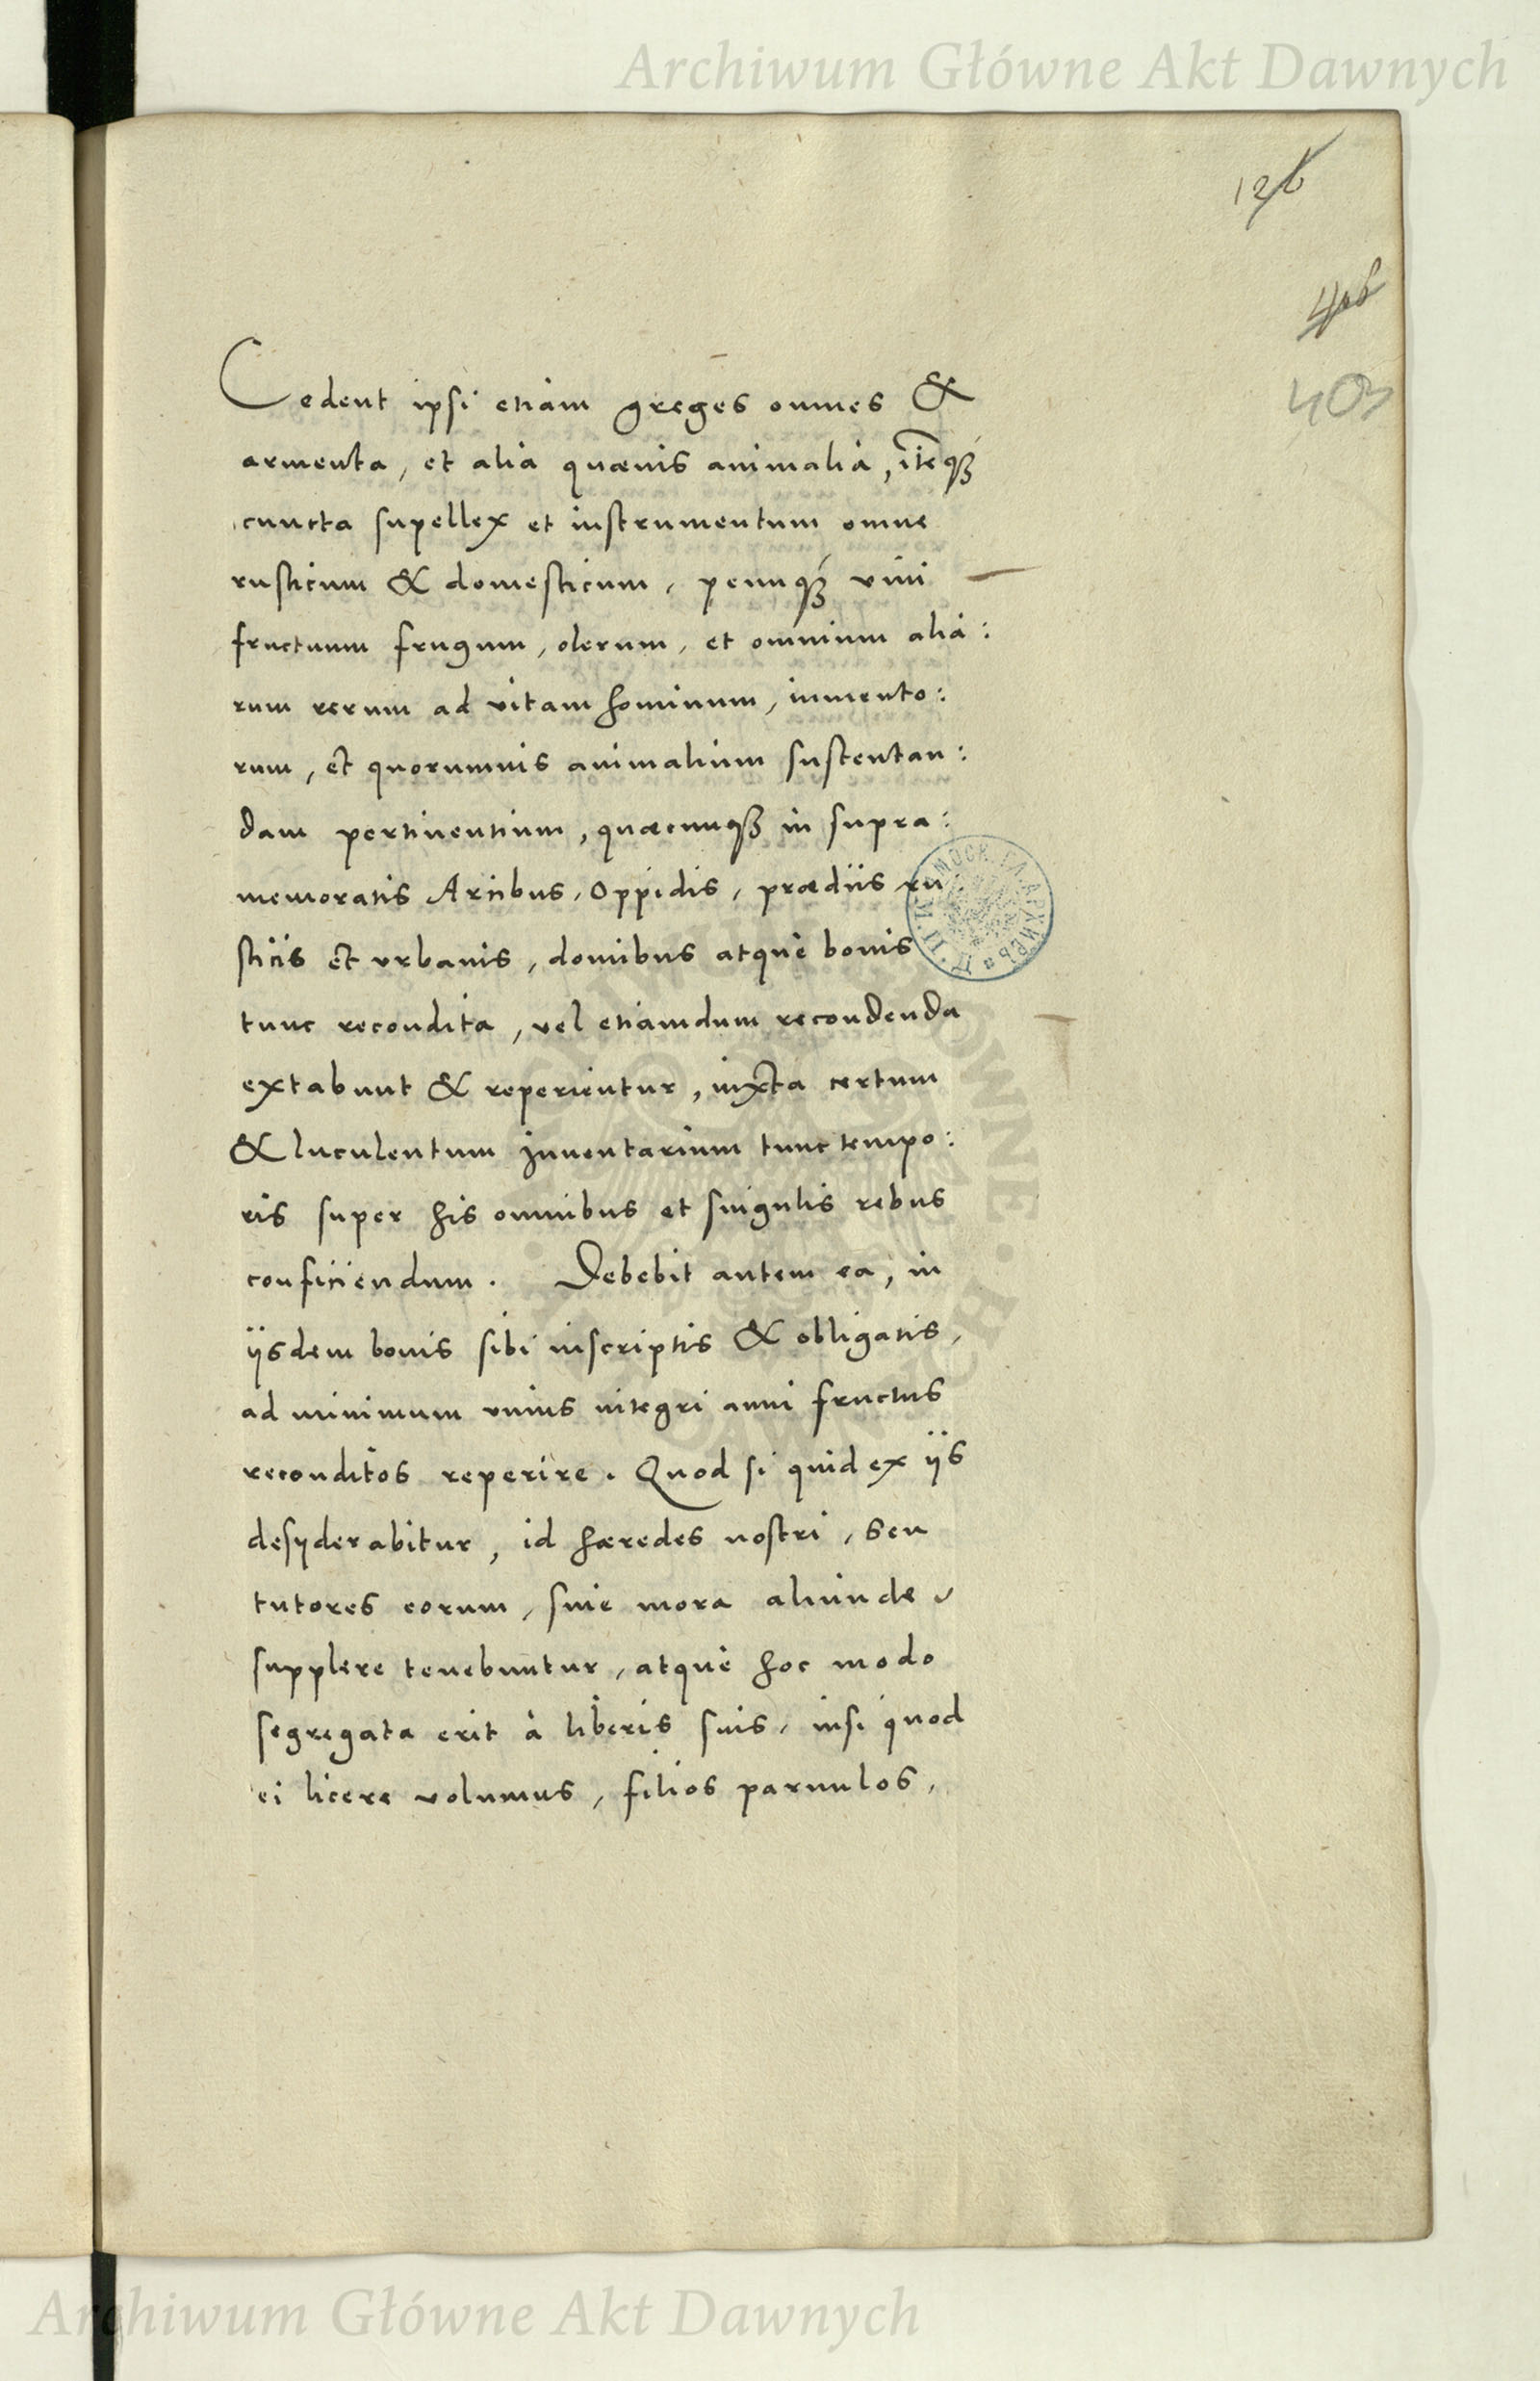 Archiwum Główne Akt Dawnych
126
403
Cedent ipsi etiam greges omnes &
armenta, et alia quævis animalia, itēqꝫ
cuncta supellex et instrumentum omne
rusticum & domesticum, penuqꝫ vini
fructuum frugum, olerum, et omnium alia:
rum rerum ad vitam hominum, iumento:
rum, et quorumvis animalium sustentan:
dam pertinentium, quæcunqꝫ in supra:
memoratis Arcibus, Oppidis, prædiis ru
sticis et vrbanis, domibus atque bonis
tunc recondita, vel etiamdum recondenda
extabunt & reperientur, iuxta certum
& luculentum Inventarium tunc tempo:
ris super his omnibus et singulis rebus
conficiendum. Debebit autem ea, in
ijsdem bonis sibi inscriptis & obligatis,
ad minimum vnius integri anni fructus
reconditos reperire. Quod si quid ex ijs
desyderabitur, id hæredes nostri, seu
tutores eorum, sine mora aliunde
supplere tenebuntur, atque hoc modo
segregata erit à liberis suis, nisi quod
ei licere volumus, filios paruulos,
Archiwum Główne Akt Dawnych